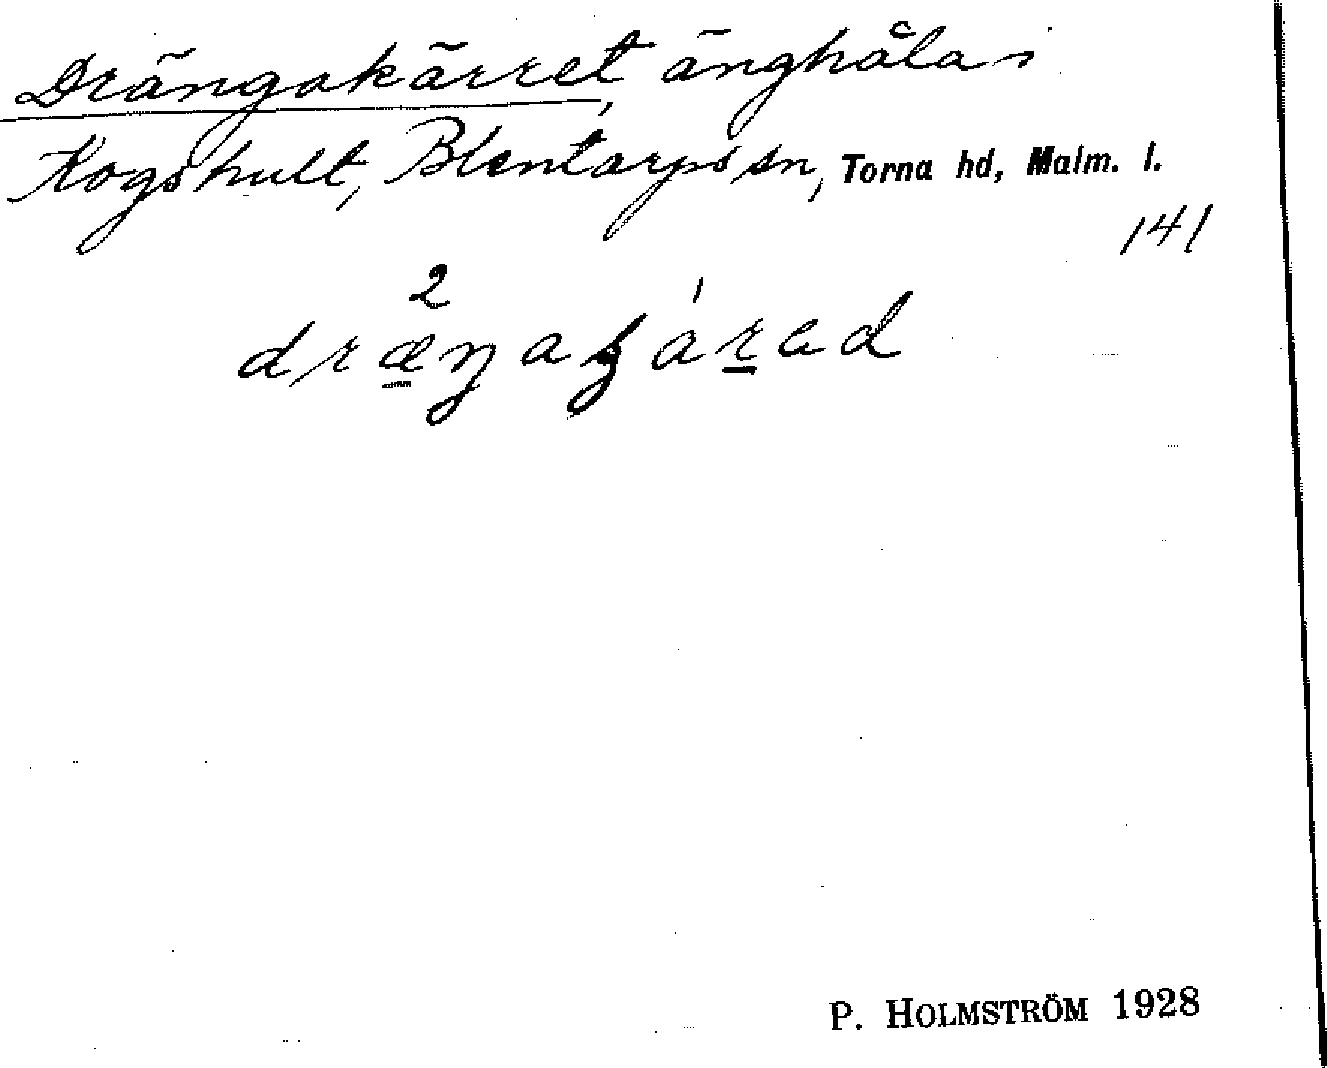 Drängakärret, änghåla i
Kogshult, Blentarps sn, Torna hd, Malm. l.
141
2
dræŋaɕárad
P. HOLMSTRÖM 1928